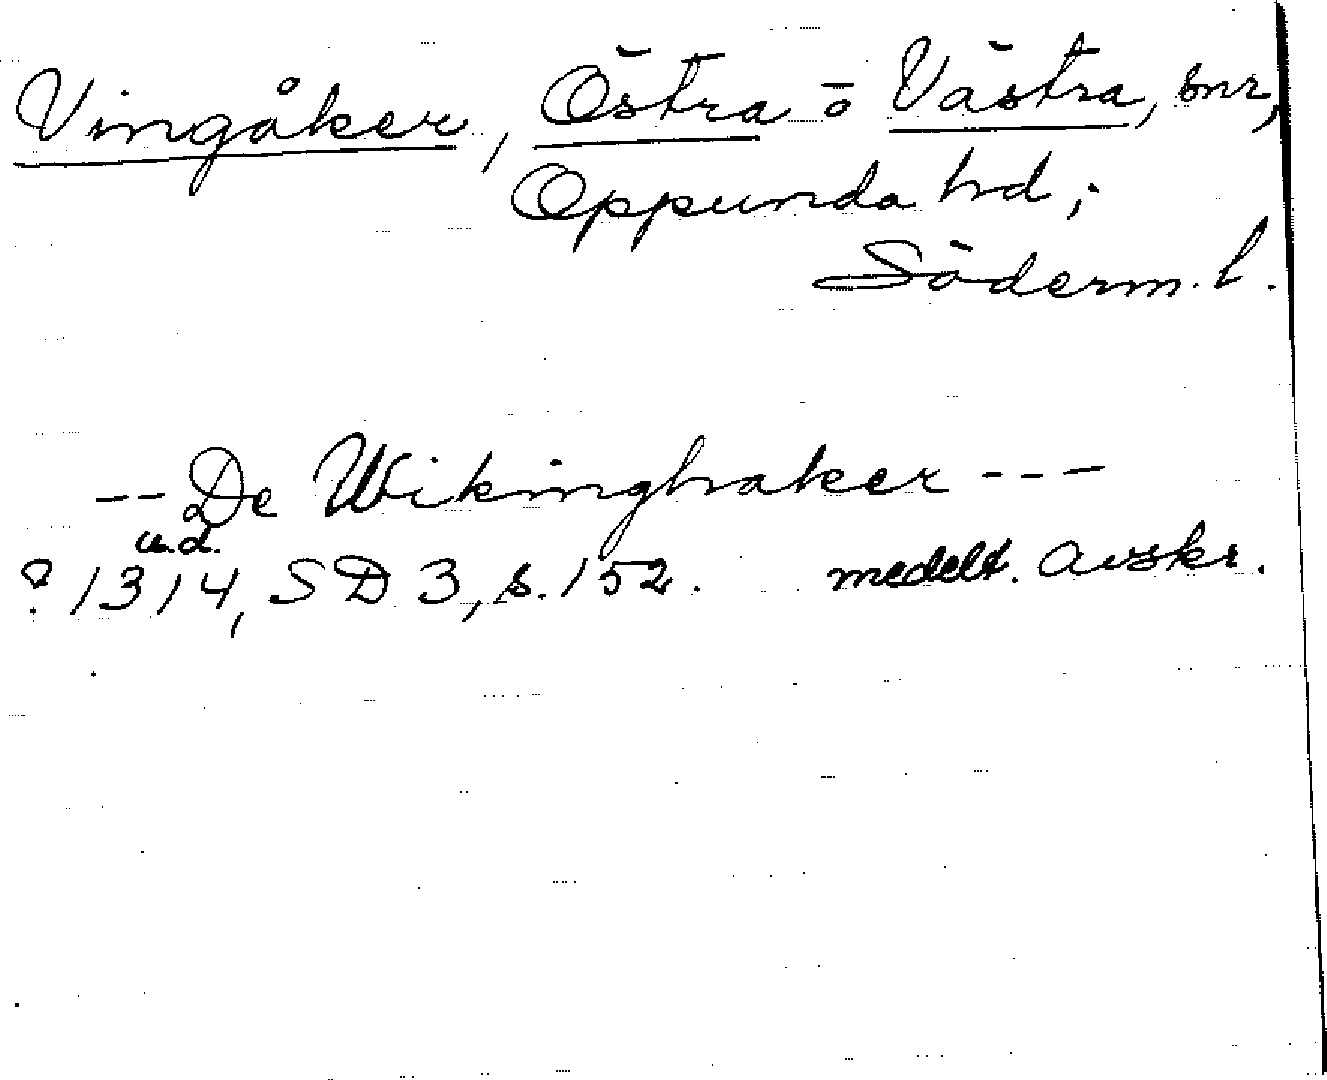 Vingåker, Östra o Västra, snr,
Oppunda hd;
Söderm. l.
-- De Wikinghaker ---
u.d.
? 1314, SD 3, s. 152. medelt. avskr.